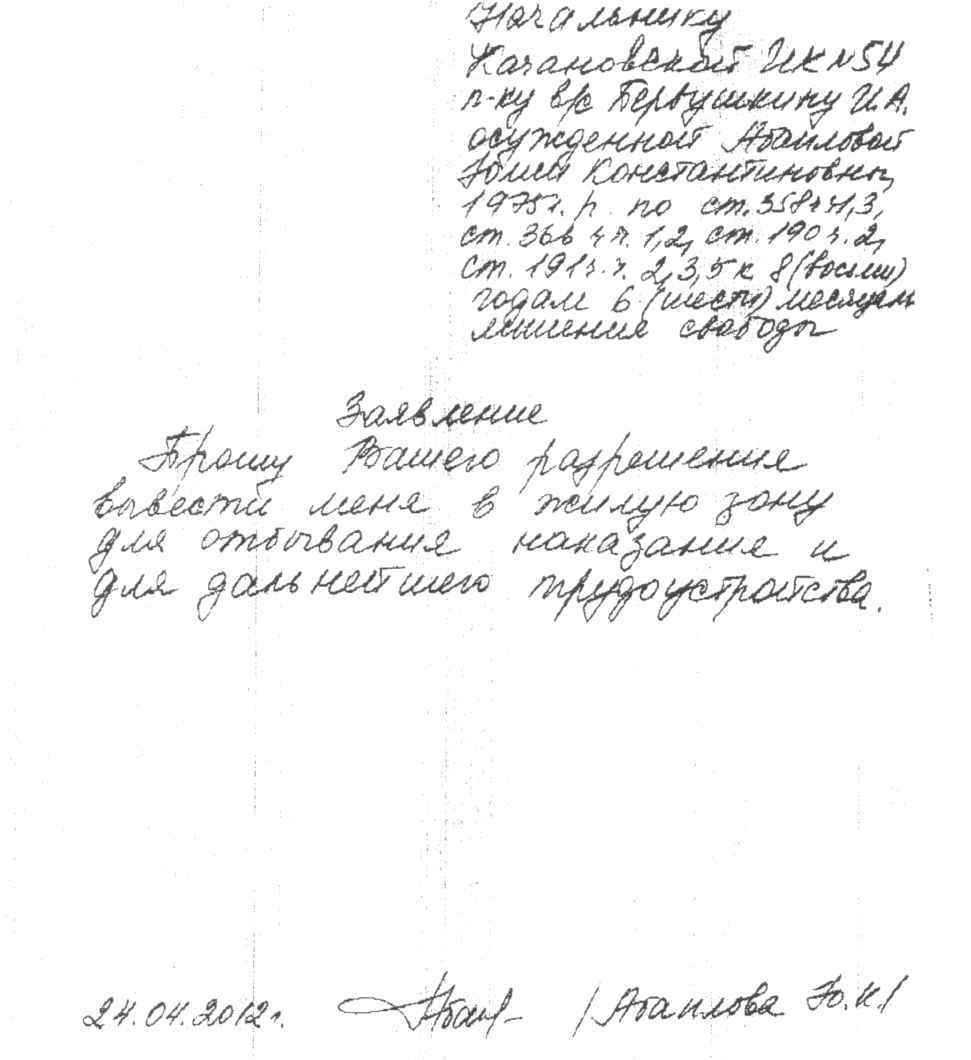 Начальнику
Качановской ИК №54
п-ку в/с Первушкину И.А.
осужденной Абаиловой
Юлии Константиновны,
1975г.р. по ст.358ч.ч1,3,
ст.366 ч.ч. 1,2, ст.190ч.2,
ст.191ч.ч. 2,3,5 к 8(восьми)
годам 6 (шести) месяцам
лишения свободы
Заявление
Прошу Вашего разрешения
вывести меня в жилую зону
для отбывания наказания и
для дальнейшего трудоустройства.
24.04.2012г. /Абаилова Ю.К/